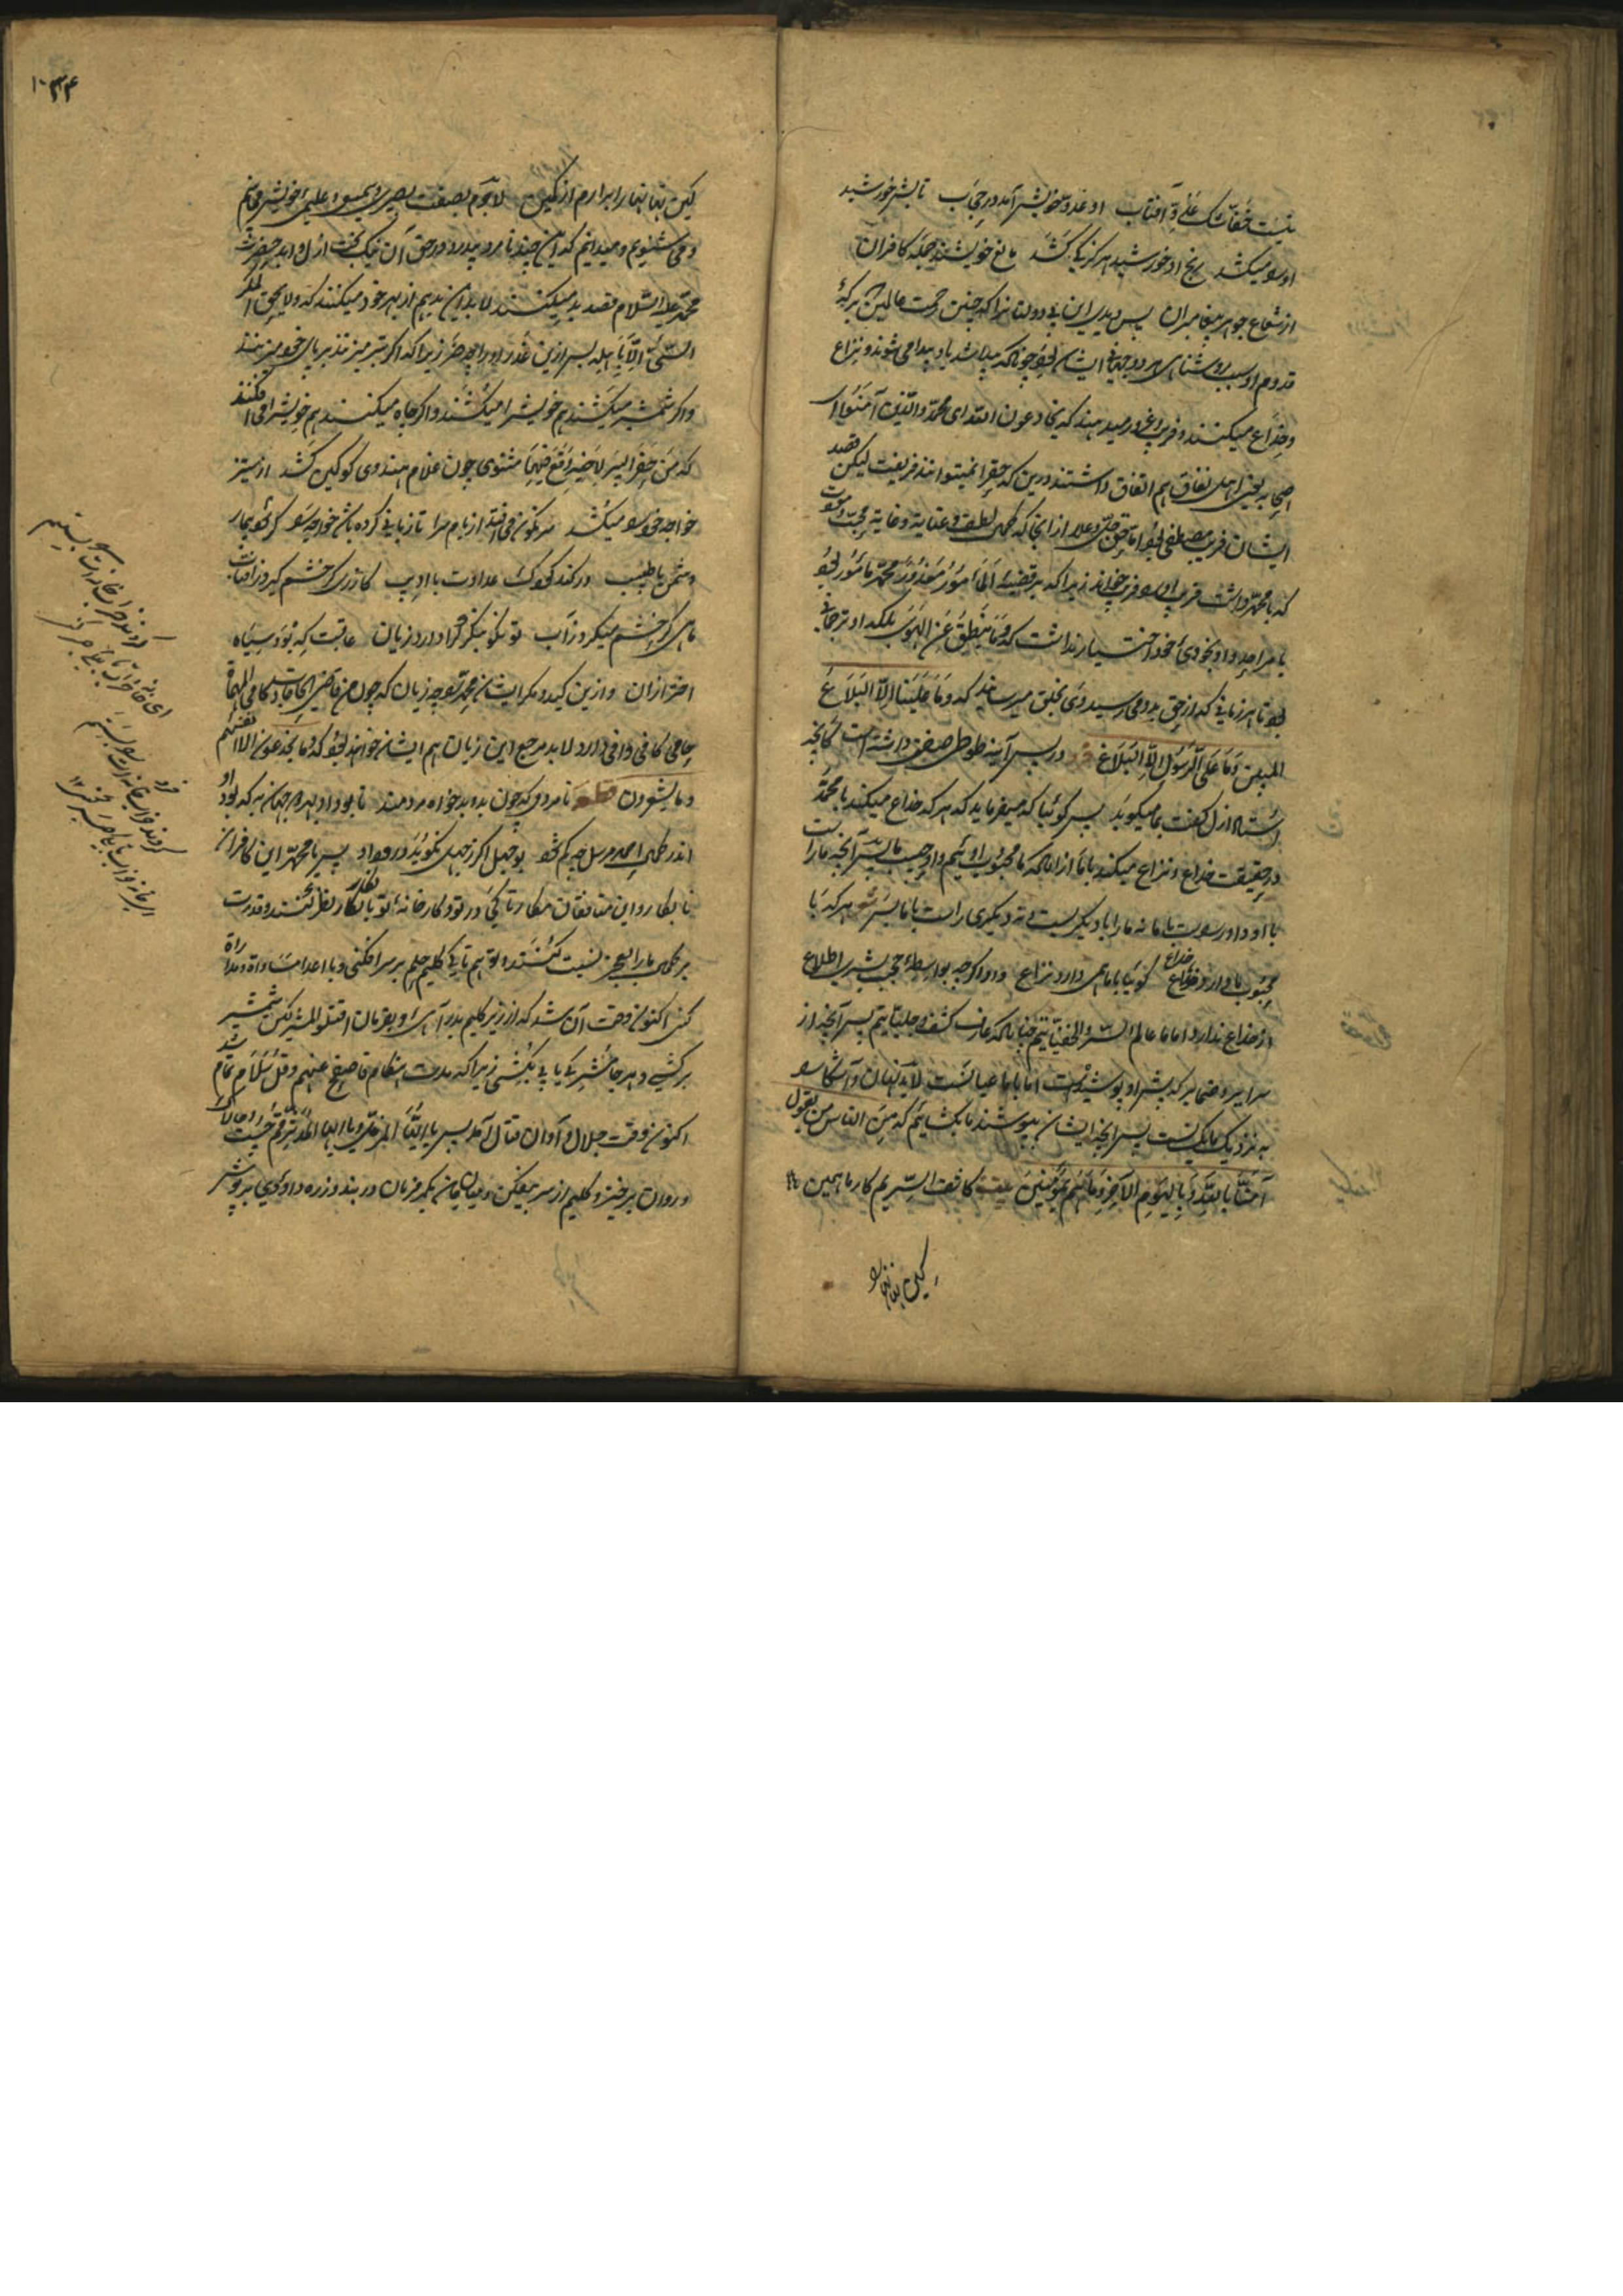 نیست خفاشک عدو آفتاب او عدو خویش آمد در حجاب تابش خورشید
او را میکشد رنج او خورشید هرگز کی کشد مانع خویشند جمله کافران
از شعاع جوهر پیغامبران پس دیدی این بی دولتانرا که چنین رحمت عالمین که
قدوم او سبب روشنای هر دو جهانی ایشان بود چونکه پیدا شد باو پیدا می شوند و نزاع
و خداع میکنند و فریب و غرور میدهند که یخادعون الله ای محمد والذین آمنوا ای
اصحابه یعنی اهل نفاق هم اتفاق داشتند درین که حق را نمیتوانند فریفت لیکن قصد
ایشان فریب مصطفی بود اما حق جل و علا از آنجا که کمال لطف و عنایة و غایة محبت و مودت
که با محمد داشت فریب او را فریب خود خواند زیرا که بر قضیه المامور معذور محمد مامور بود
با مراحد و او بخودی خود اختیار نداشت که و ما ینطق عن الهوی بلکه او ترجمانی
بود تا هر زمانی که از حق بدو می رسید وی بخلق میرساند که و ما علینا الا البلاغ
المبین و ما علی الرسول الا البلاغ فرد در پس آینه طوطی صفتم داشته است کانچه
استاد ازل گفت بما میگوید پس گوئیا که میفرماید که هر که خداع میکند با محمد
در حقیقت خداع و نزاع میکند با ما از انکه ما محبوب او ئیم و او حبیب ما پس آنچه ما راست
با او و او را ست با ما نه ما را با دیگریست و نه دیگری راست با ما پس هر که با
محبوب ما دارد خداع گوئیا با ما همی دارد نزاع و او اگر چه بواسطه حجب بشری اطلاع
از خداع ندارد اما ما عالم السر و الخفیاتیم چنانکه عارف کشف و جلیاتیم پس آنچه از
سرایر و ضمایر که پیش او پوشیده است اما با ما عیانست لابد نهان و آشکارا
به نزدیک ما یکیست پس آنچه ایشان بپوشند ما بکشاییم که من الناس من یقول
آمنا بالله و بالیوم الآخر و ما هم بمؤمنین بیت کاشف السریم کار ما همین
کین نهانها را
۱۰۳۴
کین نهانها را برارم از کمین لاجرم بصفت بصیری و سمیعی و علیمی خویش می بینم
و می شنویم و میدانیم که این چند نامرد بدرد در حق آن نیک بخت ازل و ابد حضرت
محمد علیه السلام قصد بد میکنند لابد این بد هم از بهر خود میکنند که و لا یحیق المکر
السیئ الا باهله پس ازین غدر او را چه ضرر زیرا که اگر تبر میزنند بر پای خود میزنند
و اگر شمشیر میکشند هم خویش را میکشند و اگر چاه میکنند هم خویش را می افکنند
که من حفر البیر لاخیه وقع فیها مثنوی چون غلام هندوی کو کین کشد از ستیز
خواجه خود را میکشد سرنگون می افتد از بام سرا تا زیانی کرده باشد خواجه را گر شود بیمار
دشمن با طبیب ور کند کودک عداوت با ادیب گازری گر خشم گیرد ز آفتاب
ماهی گر خشم میگیرد ز آب تو نکو بنگر کرا دارد زیان عاقبت که بود سیاه
اختر ازان و ازین کید و مکر ایشان محمد را چه زیان که چون من قاضی الحاجات کافی المهمات
حامی کافی وافی دارد لابد مرجع این زیان هم ایشان خواهند بود که و ما یخدعون الا انفسهم
و ما یشعرون قطعه نامردمی که چون بد و بدخواه مردمند تا بود او بهر دو جهان به که بود او
اندر کمال احمد مرسل چه کم شود بوجهل اگر ز جهل نگوید درود او پس یا محمد این کافران
نابکار و این منافقان مکار تا کی در تو و کارخانه تو بانکار نظر کنند و قدرت
بر کمال ما را بعجز نسبت کنند و تو هم تا کی گلیم حلم بر سر افکنی و با اعدا مساوات و مدارات
کنی اکنون وقت آن شد که از زیر گلیم بدر آی و بفرمان اقتلوا المشرکین شمشیر
برکشی و هر جا مشرکی یابی بکشی زیرا که مدت انتقام فاصفح عنهم و قل سلام تمام شد
اکنون وقت جلال و اوان قتال آمد پس یا ایها المزمل و یا ایها المدثر قم چست و چالاک
و روان برخیز و گلیم از سر بیفکن و میان جان بکمر فرمان در بند و زره داودی بپوش
فرد